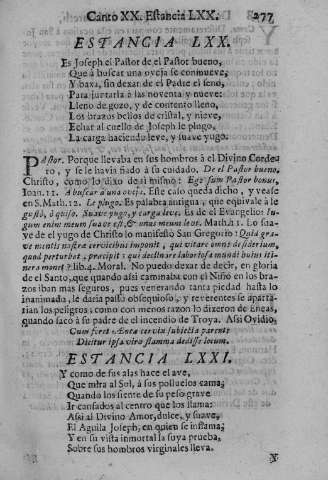 Canto XX. Estancia LXX. 277
ESTANCIA LXX.
Es Joseph el Pastor de el Pastor bueno,
Que à buscar una oveja se conmueve,
Y baxa, sin dexar de el Padre el seno,
Para juntarla à las noventa y nueve:
Lleno de gozo, y de contento lleno,
Los brazos bellos de cristal, y nieve,
Echar al cuello de Joseph le plugo,
La carga haciendo leve, y suave yugo.
Pastor. Porque llevaba en sus hombros à el Divino Corde-
ro, y se le havia fiado à su cuidado. De el Pastor bueno,
Christo, como lo dixo de si mismo: Ego sum Pastor bonus,
Joan. 11. A buscar à una oveja. Este caso queda dicho, y vease
en S. Math. 12. Le plugo. Es palabra antigua, que equivale à le
gustò, ò quiso. Suave yugo, y carga leve. Es de el Evangelio: Iu-
gum enim meum suave est, & onus meum leve. Math. 11. Lo sua-
ve de el yugo de Christo lo manifestò San Gregorio: Quid gra-
ve mentis nostræ cervicibus imponit, qui vitare omne desiderium,
quod perturbat, præcipit: qui declinare laboriosa mundi huius iti-
nera monet? lib. 4. Moral. No puedo dexar de decir, en gloria
de el Santo, que quando assi caminaba con el Niño en los bra-
zos iban mas seguros, pues venerando tanta piedad hasta lo
inanimado, le daria passo obsequioso, y reverentes se aparta-
rian los peligros; como con menos razon lo dixeron de Eneas,
quando sacò à su padre de el incendio de Troya. Assi Ovidio,
Cum foret Æneæ cervix subiecta parenti
Dicitur ipsa viro flamma dedisse locum.
ESTANCIA LXXI.
Y como de sus alas hace el ave,
Que mira al Sol, à sus polluelos cama;
Quando los siente de su peso grave
Ir cansados al centro que los llama:
Assi al Divino Amor, dulce, y suave,
El Aguila Joseph, en quien se inflama;
Y en su vista inmortal la suya prueba,
Sobre sus hombros virginales lleva.